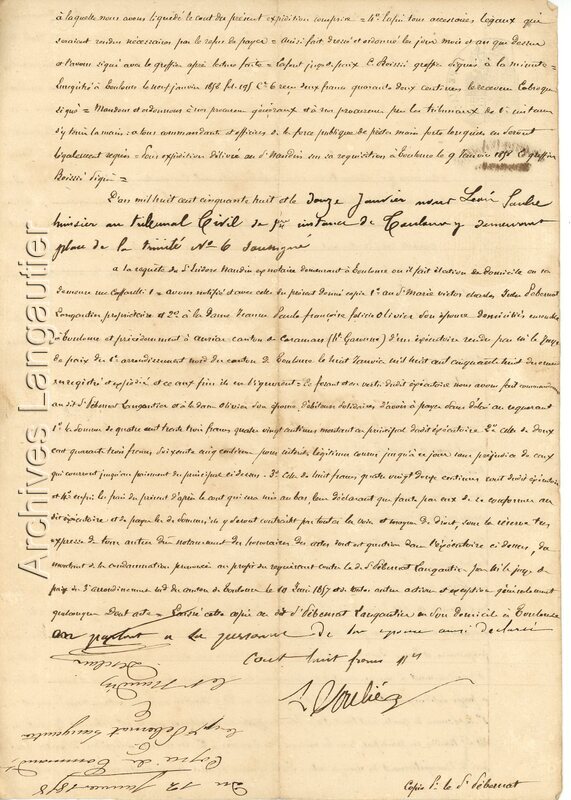 à laquelle nous avons liquidé le cout du présent expédition comprise = 4° enfin tous accessoires légaux qui
seraient rendus nécessaires par le refus de payer = Ainsi fait dressé et ordonné les jour mois et an que dessus
et l'avons signé avec le greffier après lecture faite = Lafont juge de paix C. Boissié greffier signés à la minute =
Enregistré à Toulouse le neuf janvier 1858 fol. 195 C° 6 reçu deux francs quarante deux centimes le receveur
signé = Mandons et ordonnons à nos procureurs généraux et à nos procureurs près les tribunaux de 1ère instance
d'y tenir la main : à tous commandants et officiers de la force publique de prêter main forte lorsqu'ils en seront
légalement requis = Pour expédition délivrée au Sr Naudin sur sa réquisition à Toulouse le 9 Janvier 1858 Le greffier
Boissié signé =
L'an mil huit cent cinquante huit et le douze Janvier nous Léon
huissier au tribunal Civil de 1ère instance de Toulouse y demeurant
place de la trinité No 6 soussigné
à la requête du Sr Isidore Naudin ex notaire demeurant à Toulouse où il fait élection de domicile en sa
demeure rue Caffarelli 1 = avons notifié et avec celle du présent donné copie 1° au Sr Marie victor charles d'Débernat
Langautier propriétaire et 2° à la dame Jeanne Paule françoise Olivier son épouse domiciliés ensemble
à Toulouse et précédemment à Auriac canton de Caraman (Hte Garonne) d'un exécutoire rendu par Mr le Juge
de paix du 1er arrondissement nord du canton de Toulouse le huit Janvier mil huit cent cinquante huit
enregistré et expédié et ce aux fins ils n'ignorent = Ce faisant et en vertu dudit exécutoire nous avons fait commandement
au dit Sr Débernat Langautier et à la dame Olivier son épouse débiteurs solidaires d'avoir à payer sans délai au requérant
1° la somme de quatre cent trente trois francs quatre vingt centimes montant en principal dudit exécutoire 2° celle de deux
cent quarante trois francs soixante cinq centimes pour intérêts légitimes courus jusqu'à ce jour sans préjudice de ceux
qui courront jusqu'au paiement du principal ci dessus = 3° Celle de huit francs quatre vingt deux centimes cout dudit exécutoire
et 4° enfin les frais du présent d'après le cout qui sera mis au bas leur déclarant que faute par eux de se conformer au
dit exécutoire et de payer les dites sommes ils y seront contraints par toutes les voies et moyens de droit, sous la réserve très
expresse de tous autres dus notamment des honoraires des actes dont est question dans l'exécutoire ci dessus, du
montant de la condamnation prononcée au profit du requérant contre le dit Sr Débernat Langautier par Mr le juge de
paix du 3e arrondissement sud du canton de Toulouse le 10 1857 et de toutes autres actions et exceptions généralement
quelconques Dont acte = Laissé cette copie au dit Sr Débernat Langautier en son domicile à Toulouse
en parlant à la personne de son épouse ainsi déclaré
cout huit francs
Copie pr. le Sr Débernat
Du 12 Janvier 1858
Copie de Commandt
Débernat Langautier
Sr Naudin
Archives Langautier